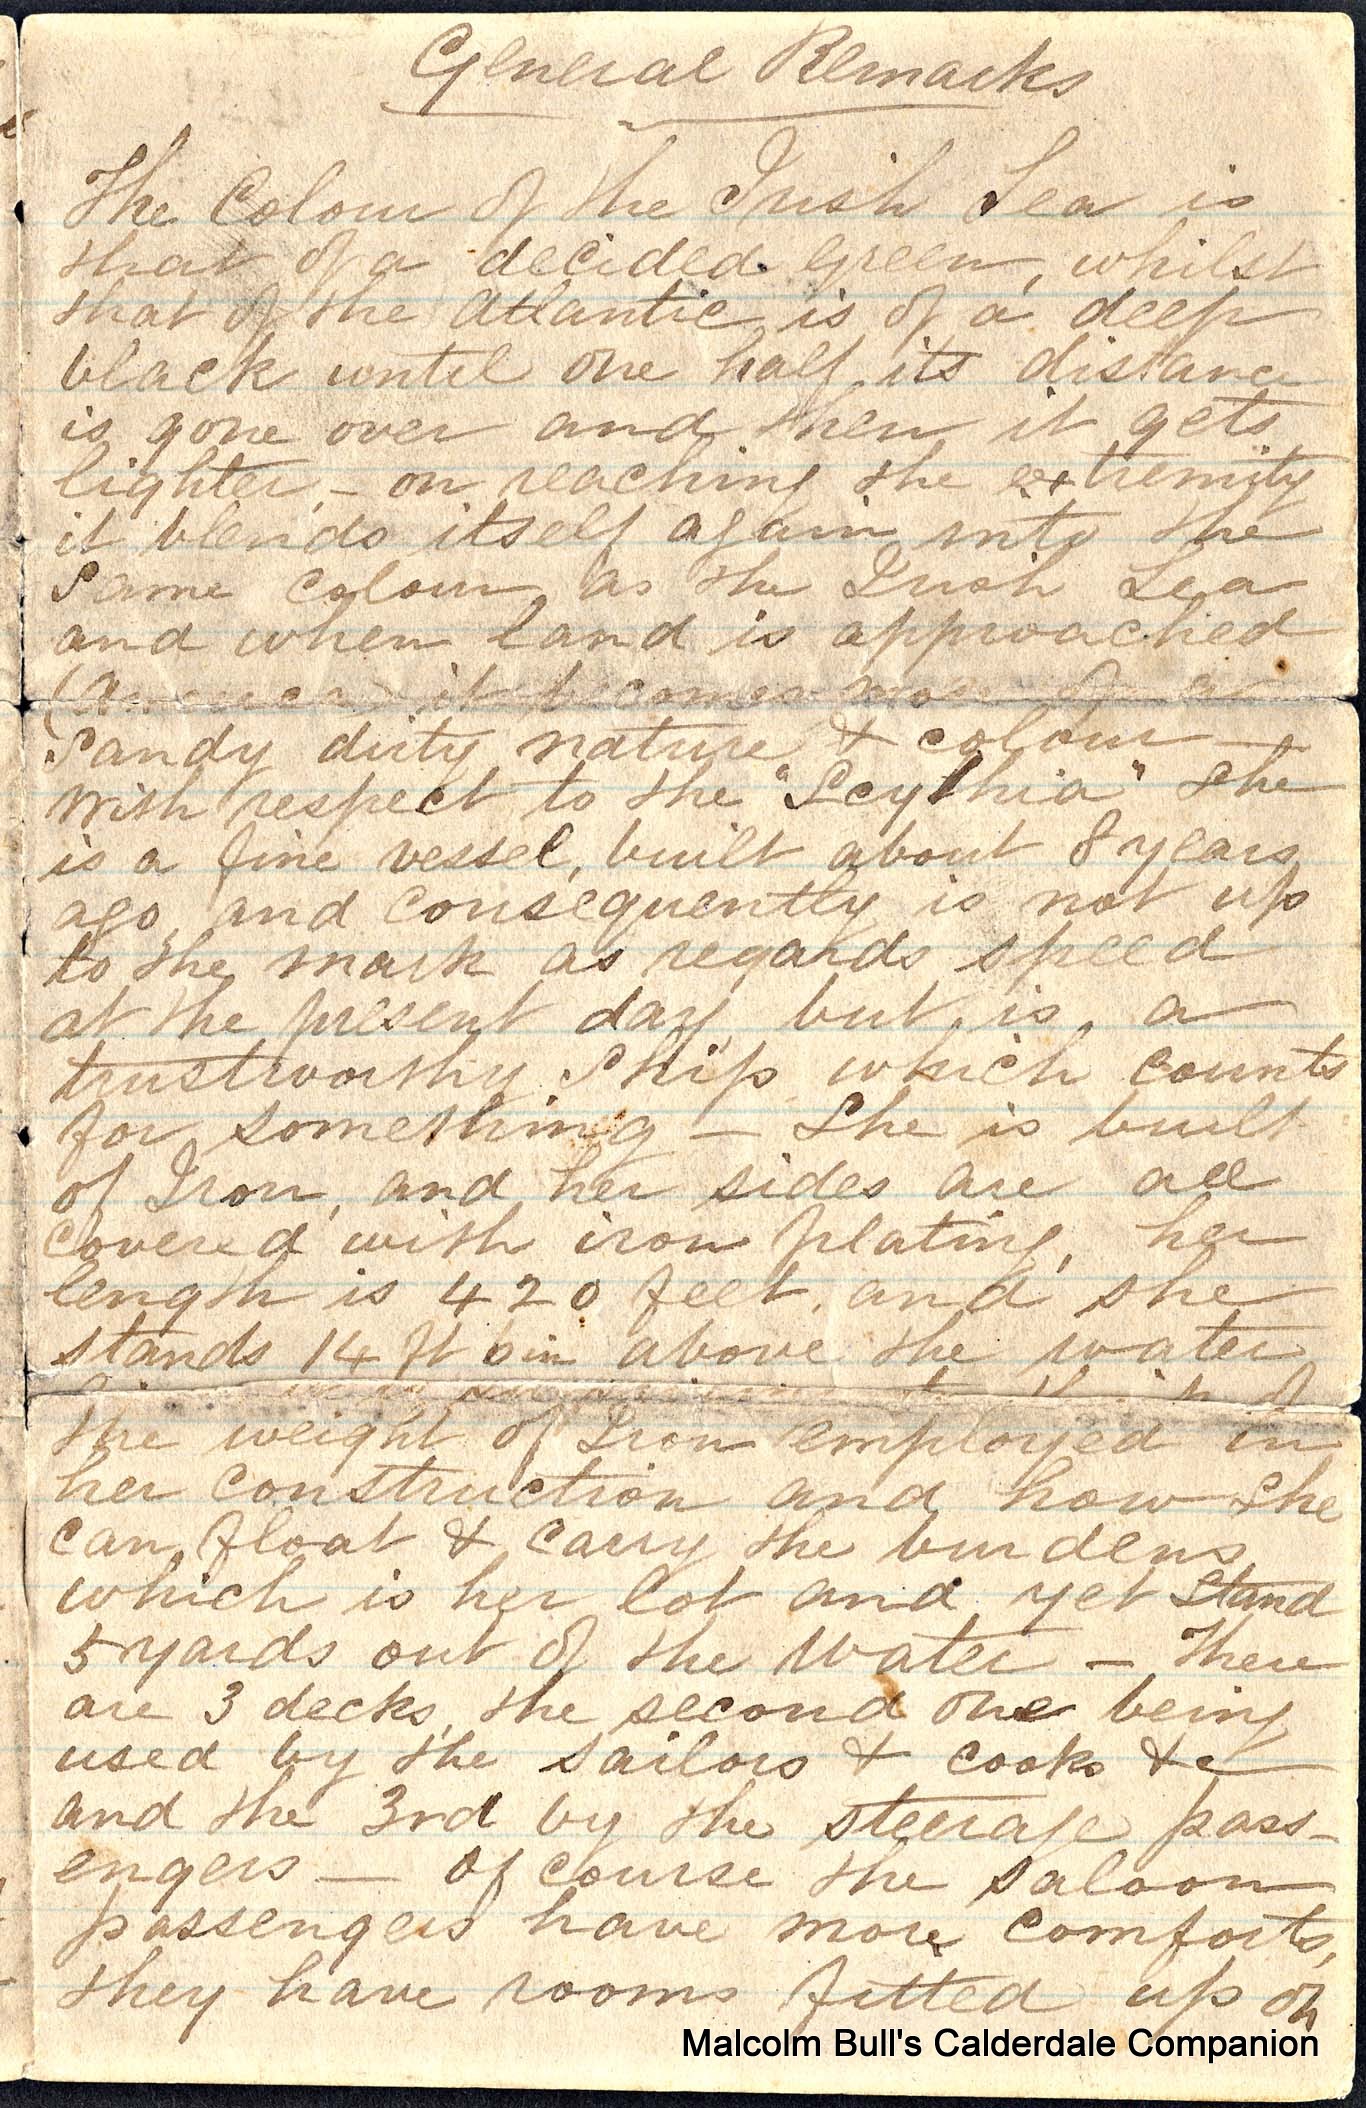 General Remarks
The Colour of the Irish Sea is
that of a decided green, whilst
that of the Atlantic is of a deep
black until one half its distance
is gone over and then it gets
lighter, - on reaching the extremity
it blends itself again into the
same colour as the Irish Sea
and when land is approached
(America) it becomes more of a
Sandy dirty nature & colour -
With respect to the "Scythia" she
is a fine vessel, built about 8 years
ago, and consequently is not up
to the mark as regards speed
at the present day, but is a
trustworthy Ship which counts
for something - She is built
of Iron, and her sides are all
covered with iron plating, her
length is 420 feet, and she
stands 14 ft 6 in above the water
it is surprising to think of
the weight of Iron employed in
her construction and how she
can float & carry the burdens
which is her lot and yet stand
5 yards out of the Water - There
are 3 decks, the second one being
used by the sailors & cooks &c
and the 3rd by the steerage pass-
engers - Of course the saloon
passengers have more comforts,
they have rooms fitted up on
Malcolm Bull's Calderdale Companion